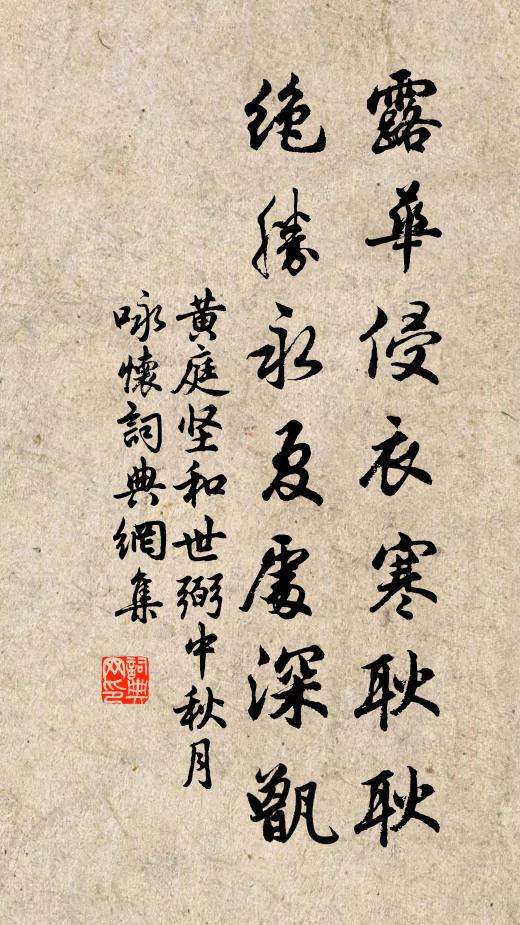 露華侵衣寒耿耿
絶勝永夏處深甑
黄庭坚和世弼中秋月
咏懷詞典網集
詞典
网印